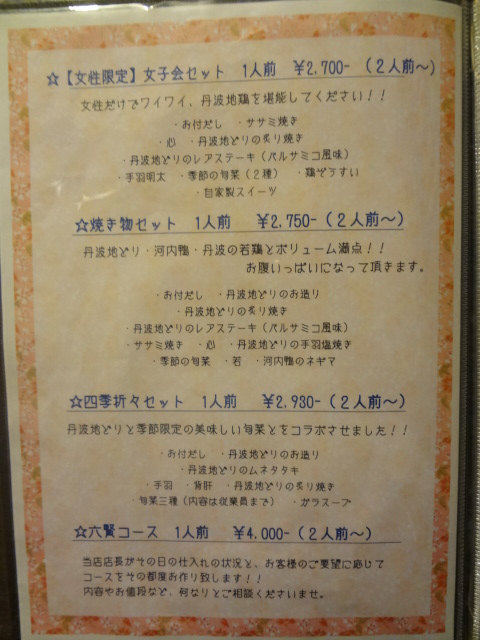 ☆【女性限定】女子会セット 1人前 ¥2,700-（2人前～）
女性だけでワイワイ、丹波地鶏を堪能してください！！
・お付だし ・ササミ焼き
・心 ・丹波地どりの炙り焼き
・丹波地どりのレアステーキ（バルサミコ風味）
・手羽明太 ・季節の旬菜（2種） ・鶏ぞうすい
・自家製スイーツ
☆焼き物セット 1人前 ¥2,750-（2人前～）
丹波地どり・河内鴨・丹波の若鶏とボリューム満点！！
お腹いっぱいになって頂きます。
・お付だし ・丹波地どりのお造り
・丹波地どりの炙り焼き
・丹波地どりのレアステーキ（バルサミコ風味）
・ササミ焼き ・心 ・丹波地どりの手羽塩焼き
・季節の旬菜 ・若 ・河内鴨のネギマ
☆四季折々セット 1人前 ¥2,930-（2人前～）
丹波地どりと季節限定の美味しい旬菜とをコラボさせました！！
・お付だし ・丹波地どりのお造り
・丹波地どりのムネタタキ
・手羽 ・背肝 ・丹波地どりの炙り焼き
・旬菜三種（内容は従業員まで） ・ガラスープ
☆六賢コース 1人前 ¥4,000-（2人前～）
当店店長がその日の仕入れの状況と、お客様のご要望に応じて
コースをその都度お作り致します！！
内容やお値段など、何なりとご相談くださいませ。